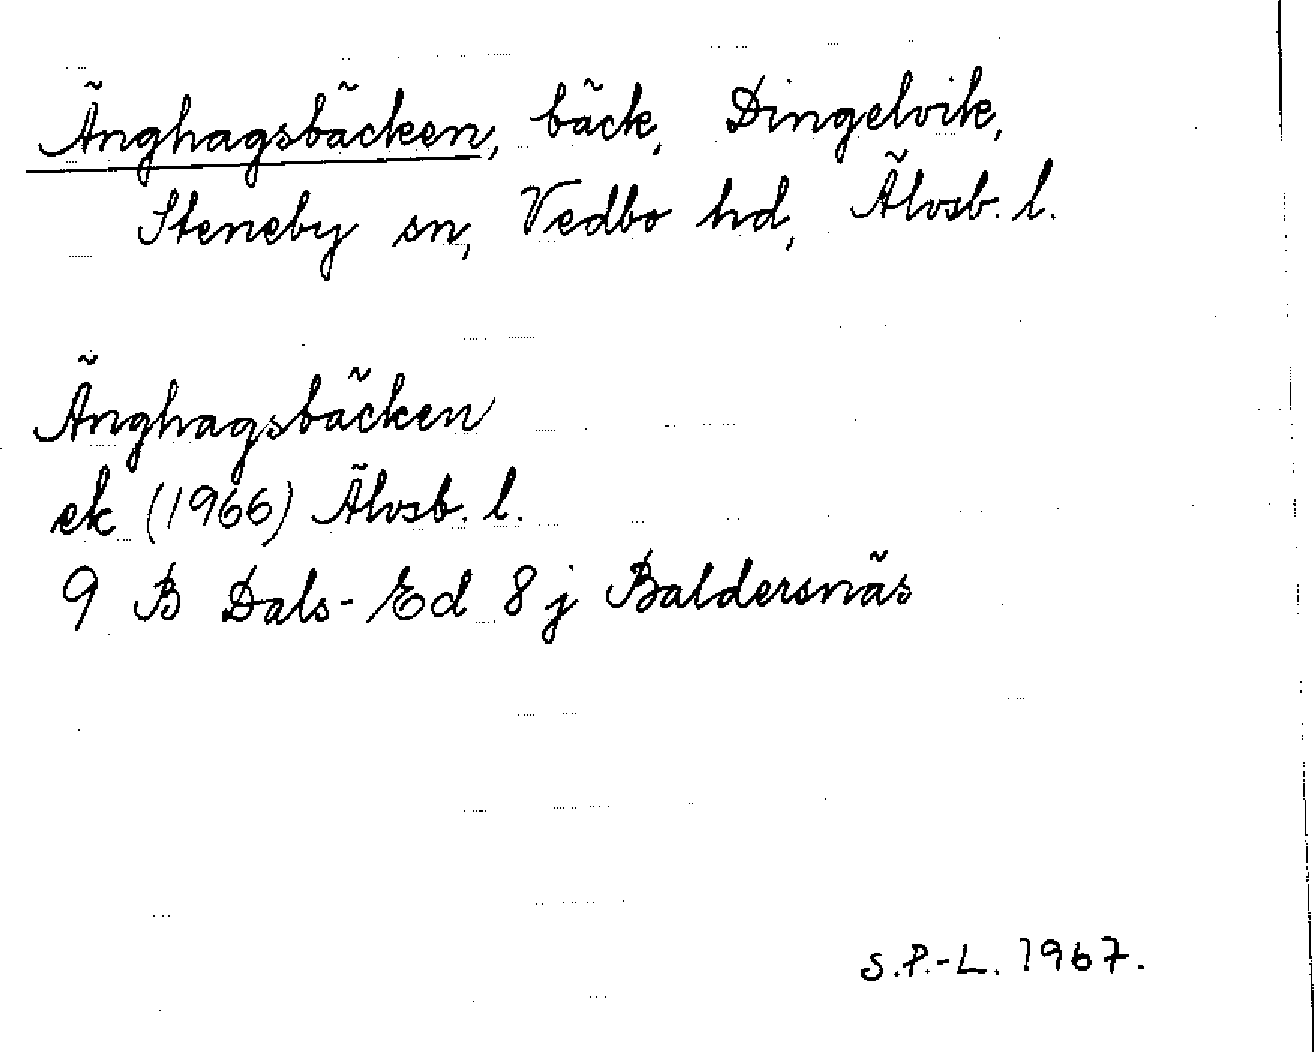 Änghagsbäcken, bäck, Dingelvik,
Steneby sn, Vedbo hd, Älvsb. l.
Änghagsbäcken
ek (1966) Älvsb. l.
9 B Dals-Ed 8 j Baldersnäs
S.P.-L. 1967.